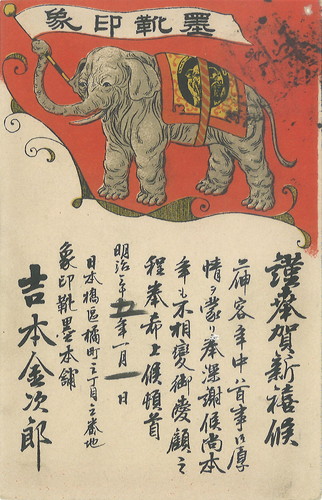 象印靴墨
謹奉賀新禧候
二伸客年中ハ百事御厚
情ヲ蒙リ奉深謝候尚本
年モ不相變御愛顧之
程奉希上候頓首
明治三十五年一月一日
日本橋區橘町三丁目三番地
象印靴墨本舗
吉本金次郎